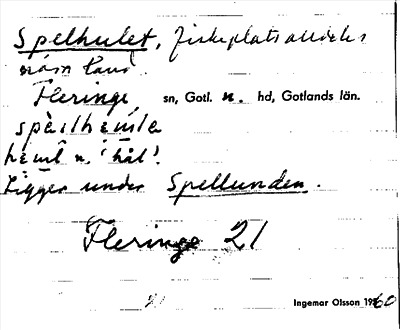 Spelhulet, fiskeplats alldeles
nära land.
Fleringe sn, Gotl. n. hd, Gotlands län.
hemt n. 'hål'.
Ligger under Spellunden.
Fleringe 21
Ingemar Olsson 1960